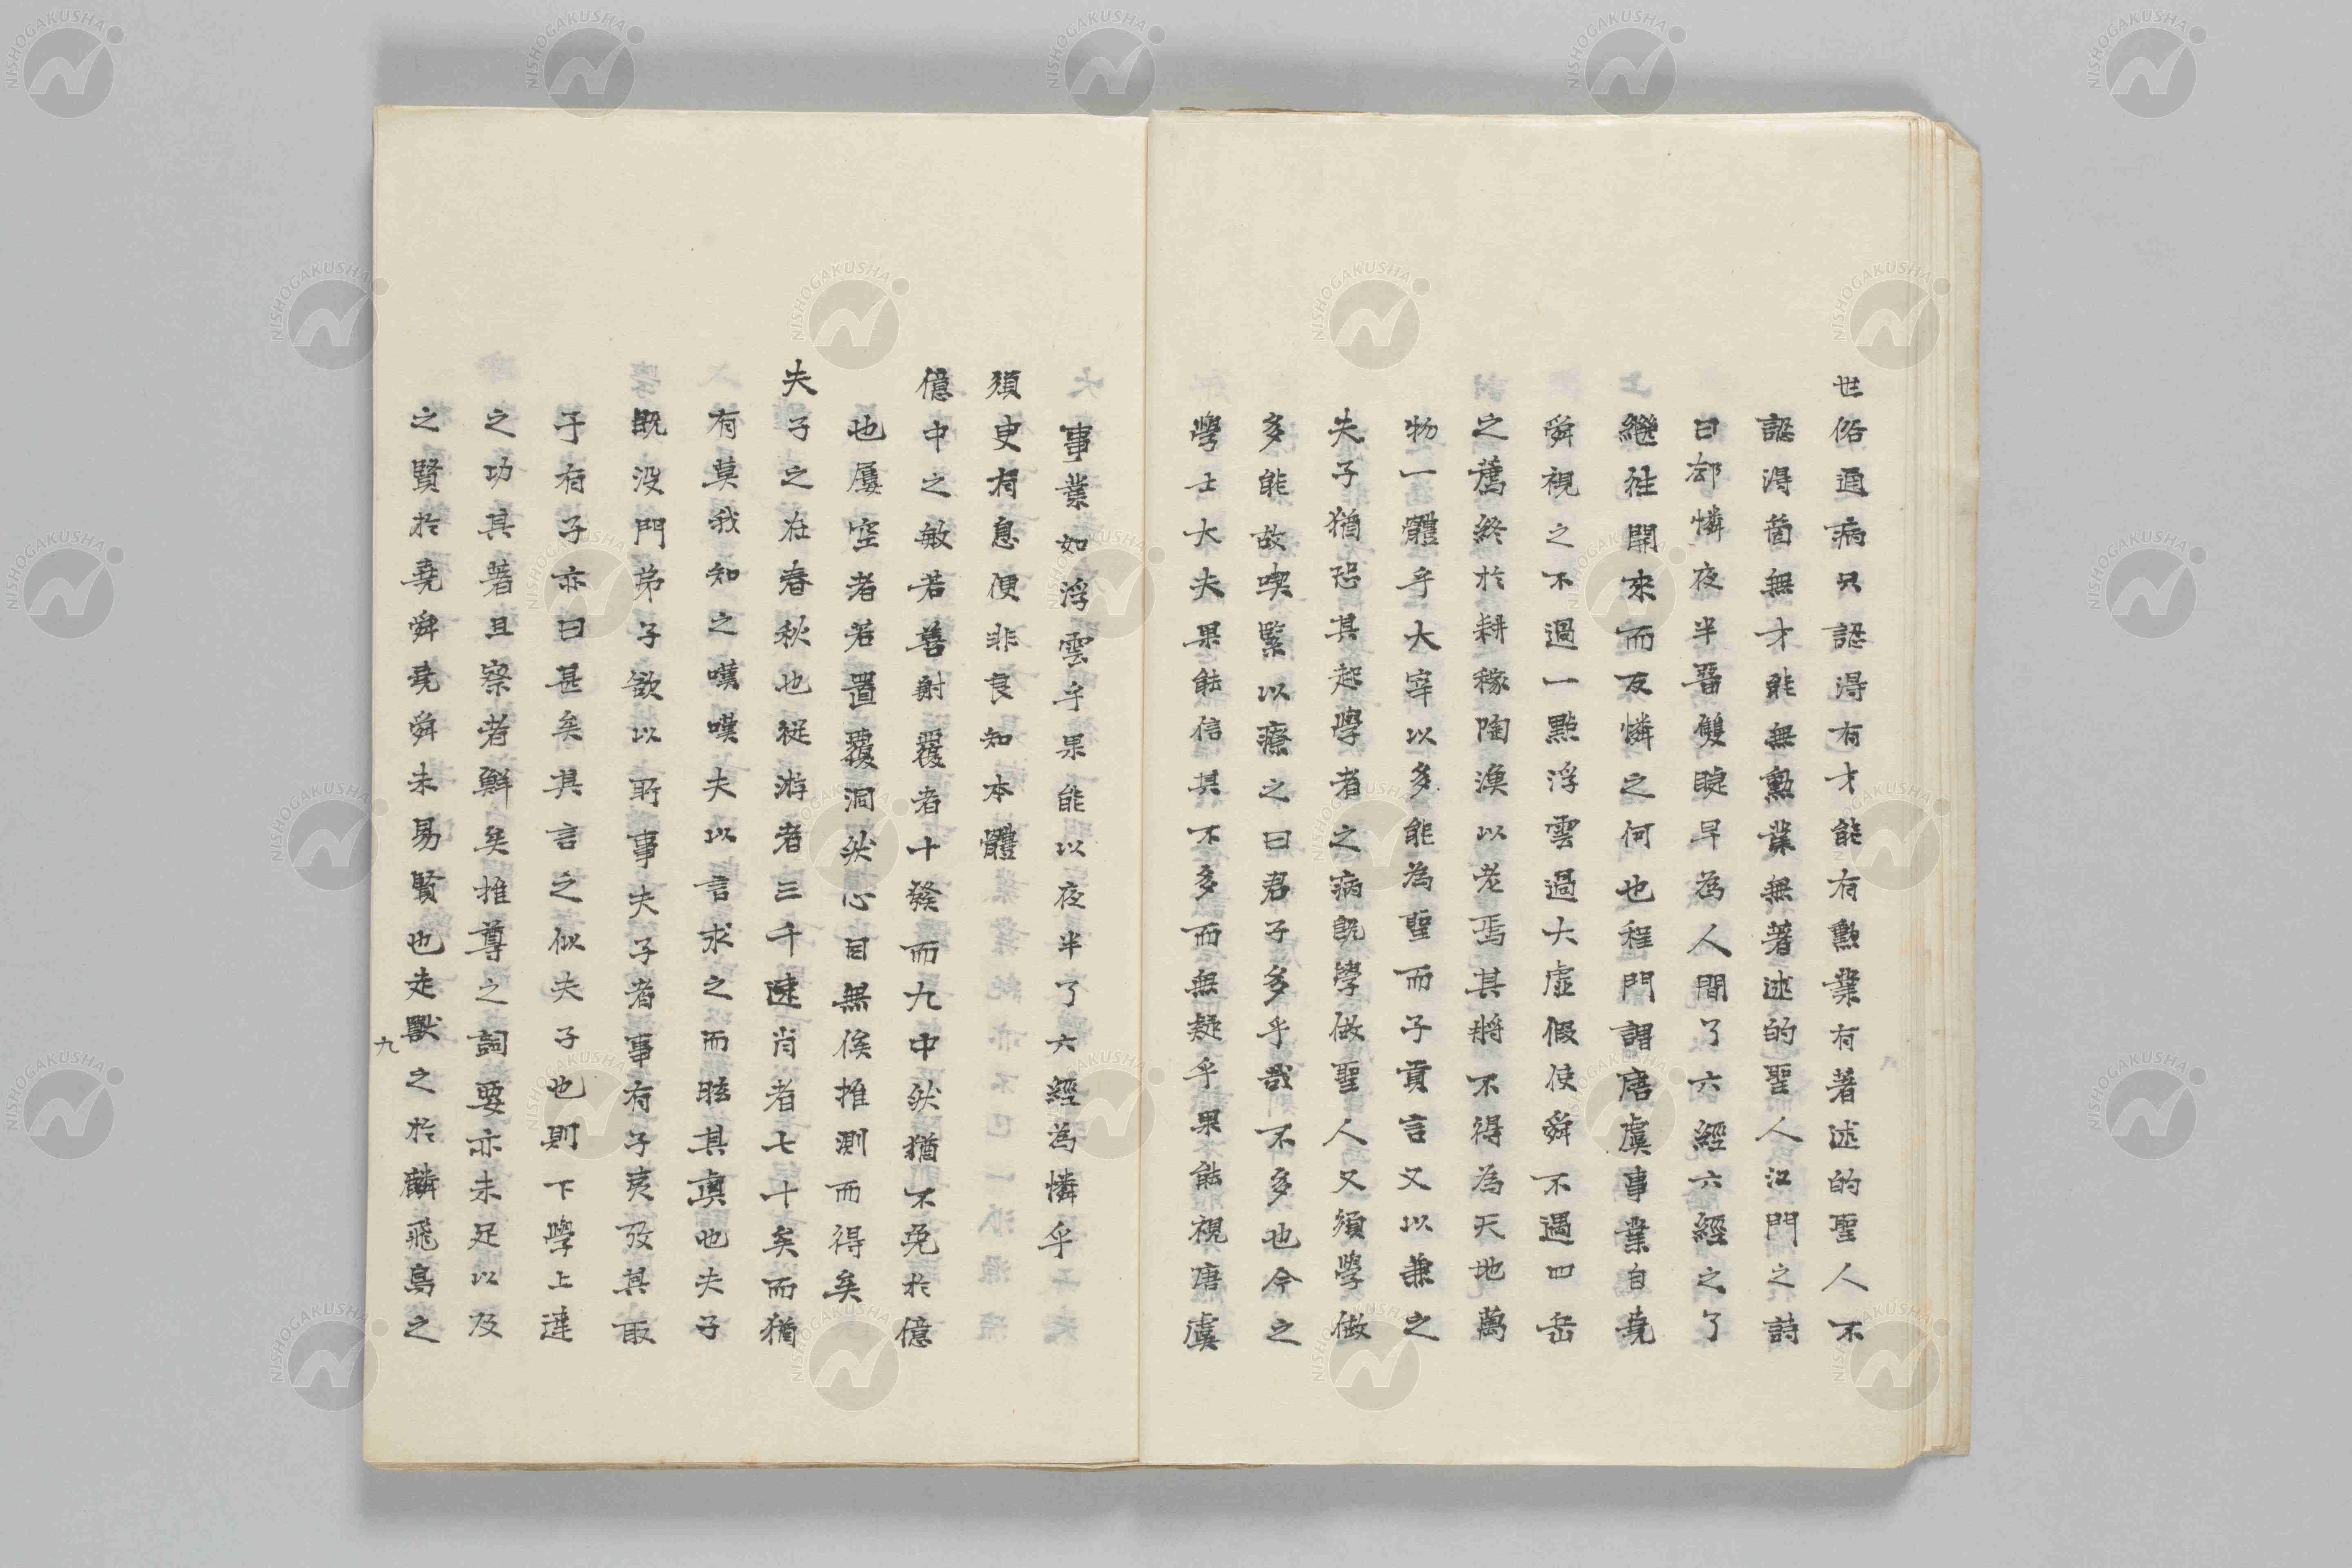 世俗通病只認得有才能有勳業有著述的聖人不
認得箇無才能無勳業無著述的聖人江門之詩
曰却憐夜半醤雙睫早為人間了六經六經之了
繼徃開來而反憐之何也程門謂唐虞事業自堯
舜視之不過一點浮雲過大虛假使舜不遇四岳
之薦終於耕稼陶漁以老焉其將不得為天地萬
物一體乎大宰以多能為聖而子貢言又以兼之
夫子猶恐其起學者之病既學做聖人又須學做
多能故喫緊以療之曰君子多乎哉不多也今之
學士大夫果能信其不多而無疑乎果能視唐虞
事業如浮雲乎果能以夜半了六經為憐乎
須吏有息便非良知本體
億中之敏若善射覆者十發而九中然猶不免於億
也屢空者若置覆洞然心目無俟推測而得矣
夫子之在春秋也從游者三千速肖者七十矣而猶
有莫我知之嘆嘆夫以言求之而眩其真也夫子
既没門弟子欲以所事夫子者事有子夷攷其取
于有子亦曰甚矣其言之似夫子也則下學上達
之功其著且察者鮮矣推尊之詞要亦未足以及
之賢於堯舜堯舜未易賢也走獸之於麟飛鳥之
九
NISHOGAKUSHA